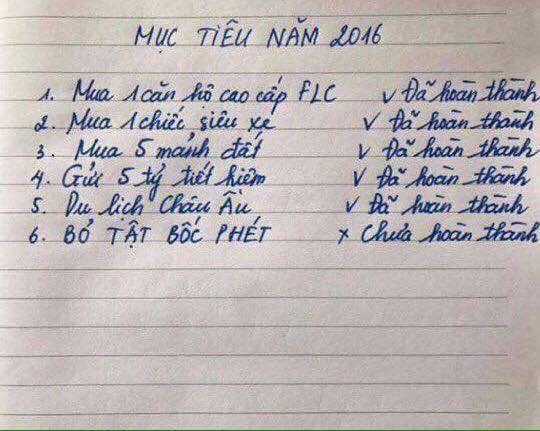 MỤC TIÊU NĂM 2016
1. Mua 1 căn hộ cao cấp FLC ✓ Đã hoàn thành
2. Mua 1 chiếc siêu xe ✓ Đã hoàn thành
3. Mua 5 mảnh đất ✓ Đã hoàn thành
4. Gửi 5 tỷ tiết kiệm ✓ Đã hoàn thành
5. Du lịch Châu Âu ✓ Đã hoàn thành
6. BỎ TẬT BỐC PHÉT × Chưa hoàn thành